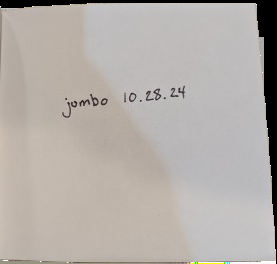 jumbo 10.28.24